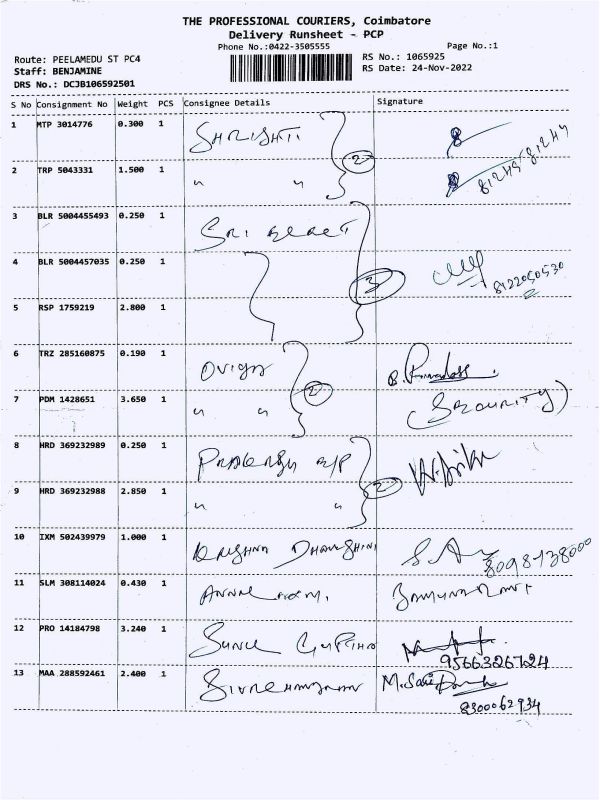 THE PROFESSIONAL COURIERS, Coimbatore
Delivery Runsheet - PCP
Phone No.:0422-3505555
Page No.:1
Route: PEELAMEDU ST PC4
RS No.: 1065925
Staff: BENJAMINE
RS Date: 24-Nov-2022
DRS No.: DCJB106592501
S No Consignment No Weight PCS Consignee Details Signature
1 MTP 3014776 0.300 1 SHRISHTI
2 TRP 5043331 1.500 1 " " 2
3 BLR 5004455493 0.250 1 SRI
4 BLR 5004457035 0.250 1 3
5 RSP 1759219 2.800 1
6 TRZ 285160875 0.190 1 OVIYA
7 PDM 1428651 3.650 1 " " 2 (SECURITY)
8 HRD 369232989 0.250 1
9 HRD 369232988 2.850 1 " " 2
10 IXM 502439979 1.000 1 KRISHNA DHARSHINI
11 SLM 308114024 0.430 1
12 PRO 14184798 3.240 1 SUNIL GUPTHA
13 MAA 288592461 2.400 1
8300062934